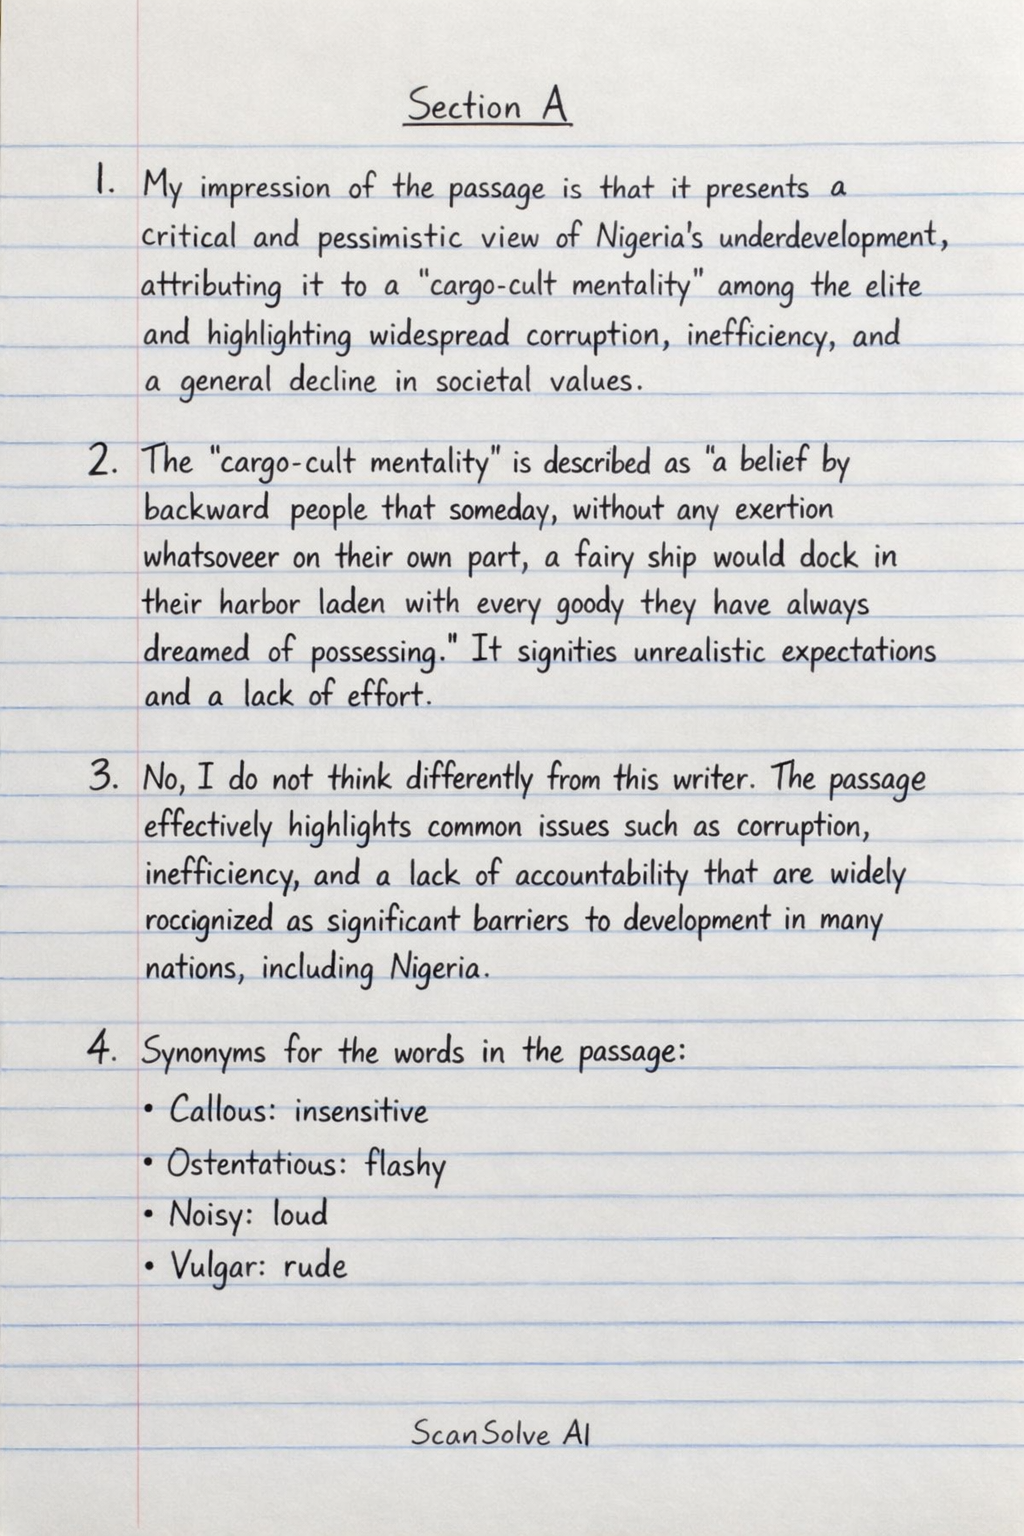 Section A
1. My impression of the passage is that it presents a
critical and pessimistic view of Nigeria's underdevelopment,
attributing it to a "cargo-cult mentality" among the elite
and highlighting widespread corruption, inefficiency, and
a general decline in societal values.
2. The "cargo-cult mentality" is described as "a belief by
backward people that someday, without any exertion
whatsoveer on their own part, a fairy ship would dock in
their harbor laden with every goody they have always
dreamed of possessing." It signities unrealistic expectations
and a lack of effort.
3. No, I do not think differently from this writer. The passage
effectively highlights common issues such as corruption,
inefficiency, and a lack of accountability that are widely
roccignized as significant barriers to development in many
nations, including Nigeria.
4. Synonyms for the words in the passage:
• Callous: insensitive
• Ostentatious: flashy
• Noisy: loud
• Vulgar: rude
ScanSolve AI